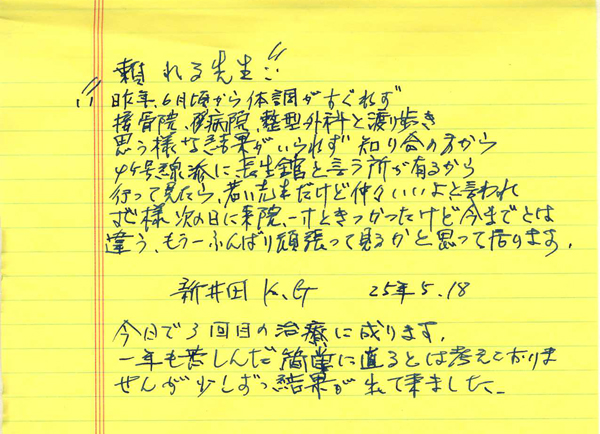 頼れる先生!!
昨年、6月頃から体調がすぐれず
接骨院、病院、整型外科と渡り歩き
思う様な結果がいられず 知り合の方から
4号線沿に、長生館と言う所が有るから
行って見たら、若い先生だけど仲々いいよと言われ
様 次の日に来院、一寸ときつかったけど今までとは
違う、もう一ふんばり頑張って見るかと思って居ります。
新井田 K.G 25年5.18
今日で3回目の治療に成ります。
一年も苦しんだ 簡単に直るとは考えておりま
せんが 少しずつ結果が出て来ました。